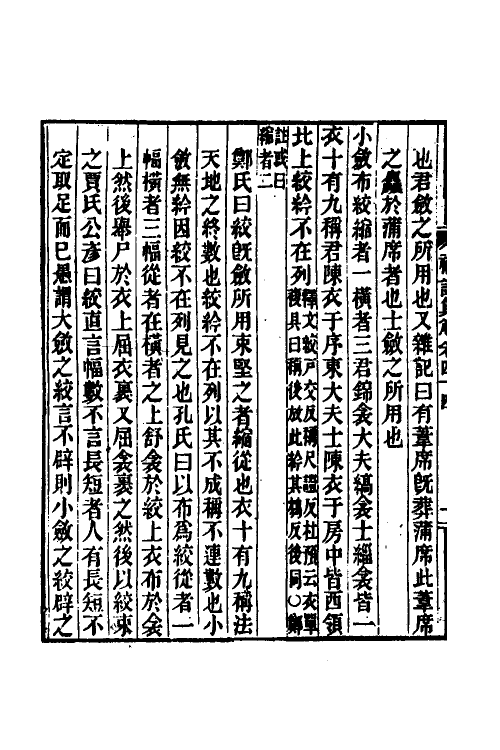 也君斂之所用也又雜記曰有葦席旣葬蒲席此葦席
之麤於蒲席者也士斂之所用也
小斂布絞縮者一橫者三君錦衾大夫縞衾士緇衾皆一
衣十有九稱君陳衣于序東大夫士陳衣于房中皆西領
北上絞紟不在列釋文絞戸交反稱尺證反杜預云衣單
複具曰稱後放此紟其鴆反後同○鄭
註或曰
縮者二
鄭氏曰絞旣斂所用束堅之者縮從也衣十有九稱法
天地之終數也絞紟不在列以其不成稱不連數也小
斂無紟因絞不在列見之也孔氏曰以布爲絞從者一
幅橫者三幅從者在橫者之上舒衾於絞上衣布於衾
上然後舉尸於衣上屈衣裹又屈衾裹之然後以絞束
之賈氏公彥曰絞直言幅數不言長短者人有長短不
定取足而已愚謂大斂之絞言不辟則小斂之絞辟之